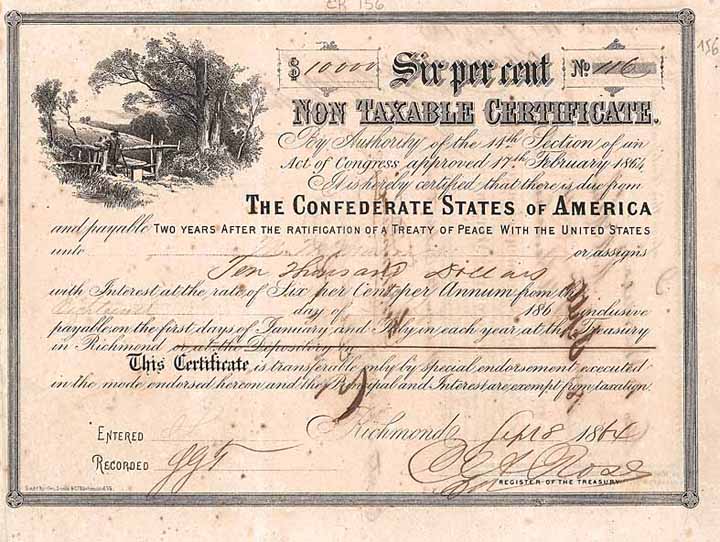 CR 156
156
$ 10000 Six per cent No 116
NON TAXABLE CERTIFICATE.
By Authority of the 14th Section of an
Act of Congress approved 17th February 1864
It is hereby certified that there is due from
THE CONFEDERATE STATES OF AMERICA
and payable TWO YEARS AFTER THE RATIFICATION OF A TREATY OF PEACE WITH THE UNITED STATES
unto or assigns
Ten thousand Dollars
with Interest at the rate of Six per Cent per Annum from the
day of 186 inclusive
payable on the first days of January and July in each year at the Treasury
in Richmond or at the Depository
This Certificate is transferable only by special endorsement executed
in the mode endorsed hereon and the Principal and Interest are exempt from taxation.
Richmond Sept 8 1864
ENTERED
RECORDED
Rose
REGISTER OF THE TREASURY